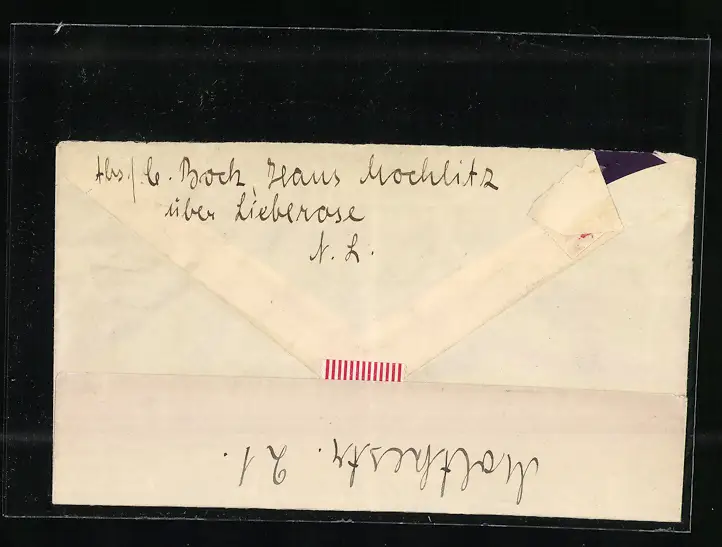 Abs./ C. Bock, Haus Mochlitz
über Lieberose
N. L.
Moltkestr. 21.